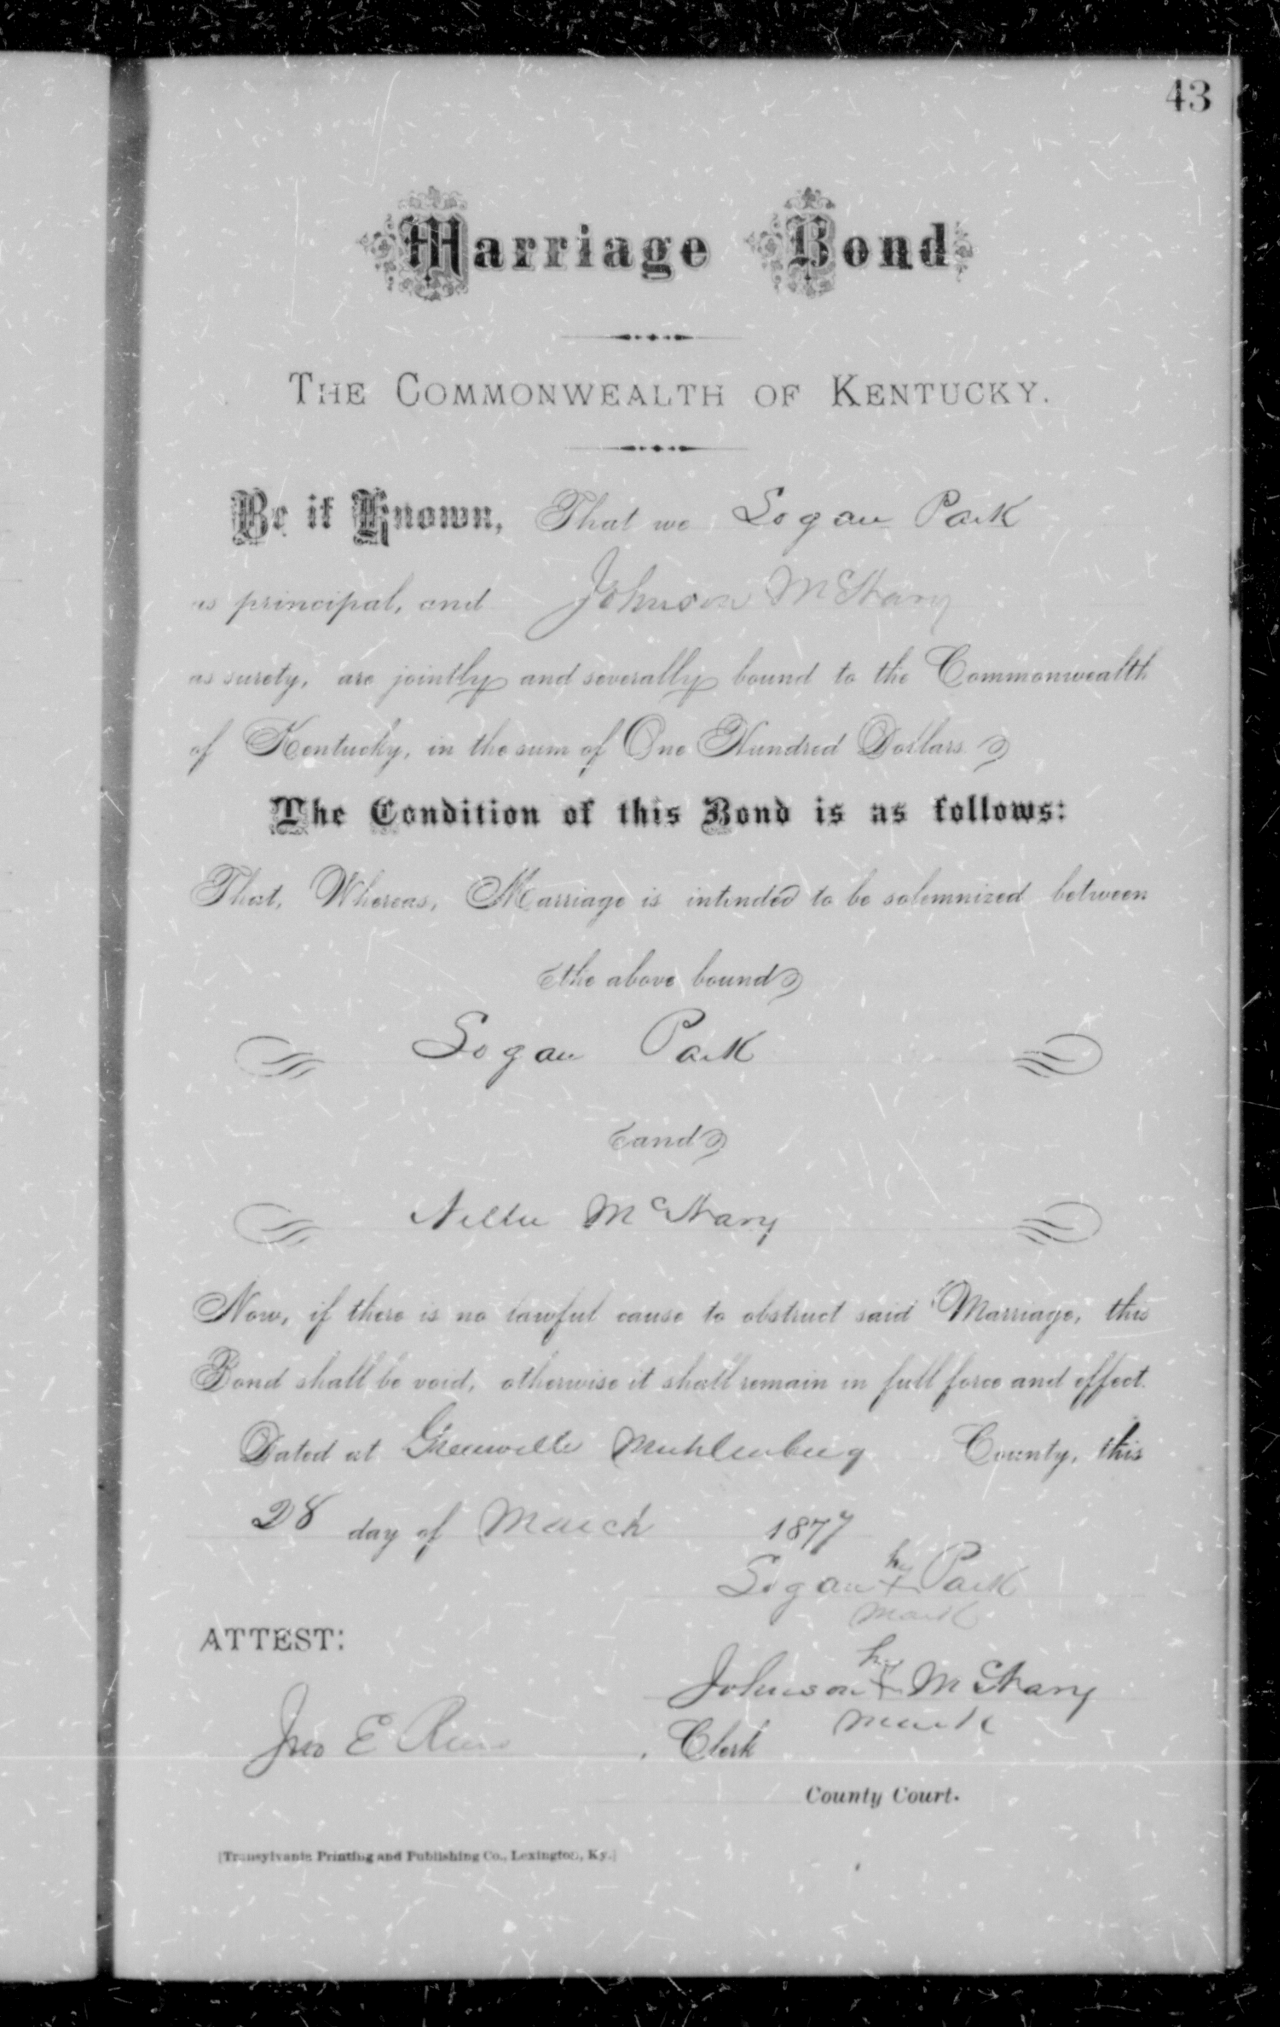 43
Marriage Bond
THE COMMONWEALTH OF KENTUCKY.
Be it Known, That we Logan Park
as principal, and Johnson McHary
as surety, are jointly and severally bound to the Commonwealth
of Kentucky, in the sum of One Hundred Dollars
The Condition of this Bond is as follows:
That, Whereas, Marriage is intended to be solemnized between
the above bound
Logan Park
and
Nellie McHary
Now, if there is no lawful cause to obstruct said Marriage, this
Bond shall be void, otherwise it shall remain in full force and effect.
Dated at Greenville Muhlenburg County, this
28 day of March 1877
his
Logan x Park
mark
ATTEST:
his
Johnson x McHary
mark
Jno E Reno, Clerk
County Court.
[Transylvania Printing and Publishing Co., Lexington, Ky.]